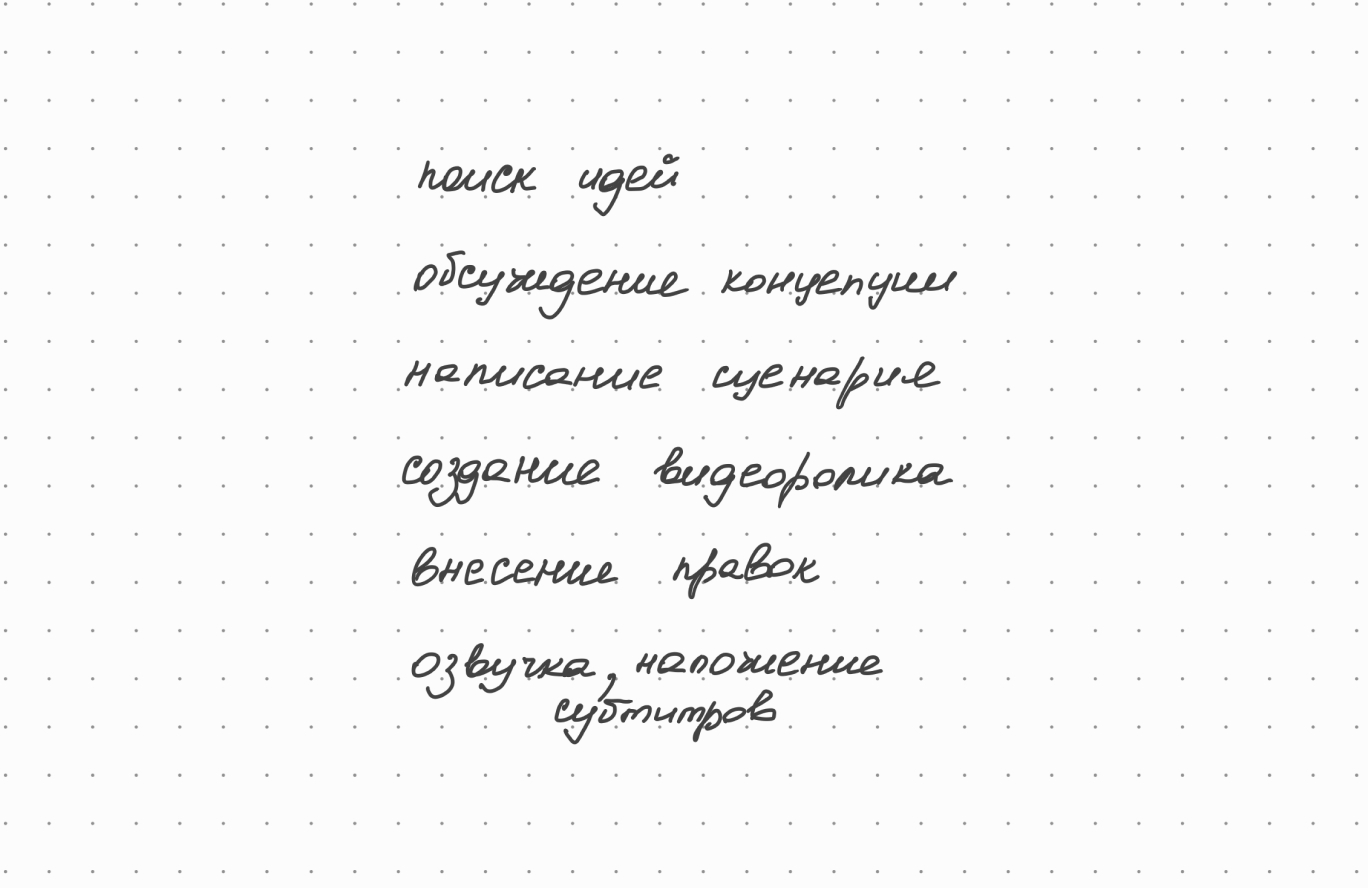 поиск идей
обсуждение концепции
написание сценария
создание видеоролика
внесение правок
озвучка, наложение
субтитров